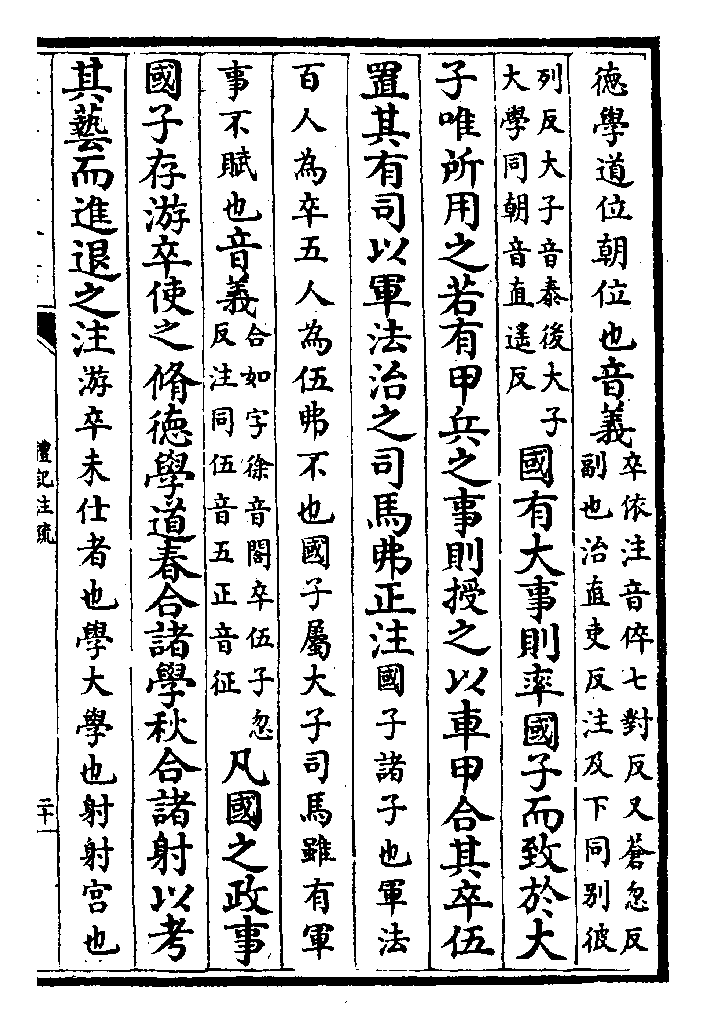 徳學道位朝位也音義卒依注音倅七對反又蒼忽反
副也治直吏反注及下同别彼
列反大子音泰後大子
大學同朝音直遥反國有大事則率國子而致於大
子唯所用之若有甲兵之事則授之以車甲合其卒伍
置其有司以軍法治之司馬弗正注國子諸子也軍法
百人為卒五人為伍弗不也國子屬大子司馬雖有軍
事不賦也音義合如字徐音閤卒伍子忽
反注同伍音五正音征凡國之政事
國子存游卒使之脩徳學道春合諸學秋合諸射以考
其藝而進退之注游卒未仕者也學大學也射射宫也
禮記注疏
二十